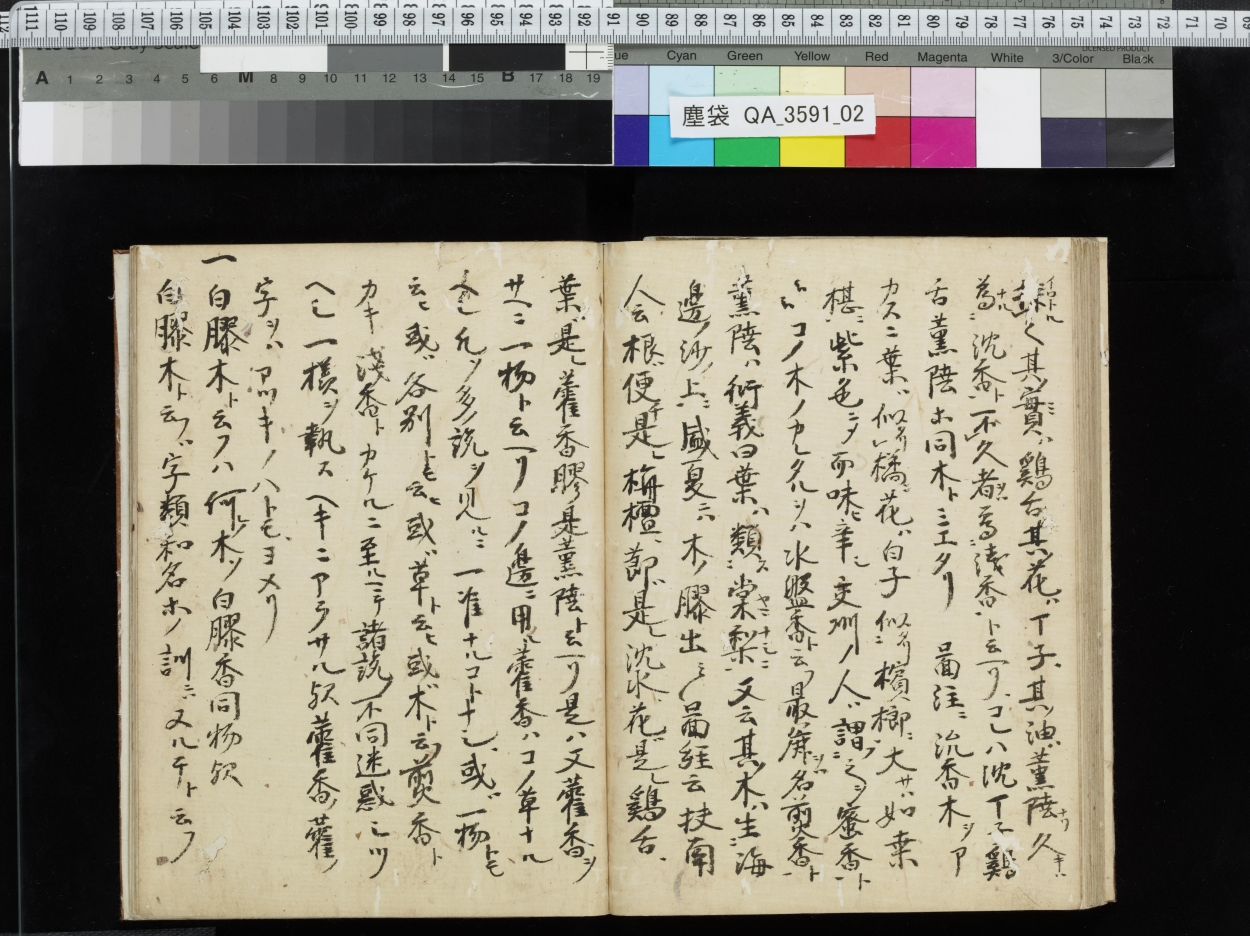 塵袋 QA_3591_02
Cyan Green Yellow Red Magenta White 3/Color Black
A 1 2 3 4 5 6 M 8 9 10 11 12 13 14 15 B 17 18 19
其ノ實ハ鷄舌其花ハ丁子其油ハ薫陸久キハ
為ナル沈香ト不久者ハ為浅香トト云ヘリコレハ沈丁子鷄
舌薫陸ホ同木トミエタリ 啚注ニ沈香木ヲア
カスニ葉ハ似タリ橘花ハ白子似タリ檳榔ニ大サハ如
椹ニ紫色ニシテ而味ハ辛シ交州ノ人ハ謂フ之ヲ蜜香ト
コノ木ノカレタルヲハ水盤香ト云フ最 名煎香ト
薫陸ハ衍義曰葉ハ類ス棠梨ニ又云其ノ木ハ生ニ海
邊ノ沙ノ上ニ盛夏ニ木ノ膠出ツ啚経云扶南
人云根ハ便チ是レ栴檀節ハ是レ沈水花ハ是レ鷄舌
葉ハ是レ藿香膠ハ是薫陸ト云ヘリ是ハ又藿香ヲ
サヘニ一物ト云ヘリコノ邊ニ用ル藿香ハコノ草ナル
ヘシ凡ソ多ノ説ヲ見ルニ一准ナルコトナシ或ハ一物トモ
云ヒ或ハ各別トモ云ヒ或ハ草ト云ヒ或ハ木ト云フ煎香ト
カキ浅香トカケルニ至ルマテ諸説ノ不同迷惑シツ
ヘシ一様ヲ執スヘキニアラサル歟藿香ノ藿ノ
字ヲハ キノハトモヨメリ
一白膠木ト云フハ何レノ木ソ白膠香同物歟
白膠木ト云フハ字類和名ホノ訓ニハヌルテト云フ